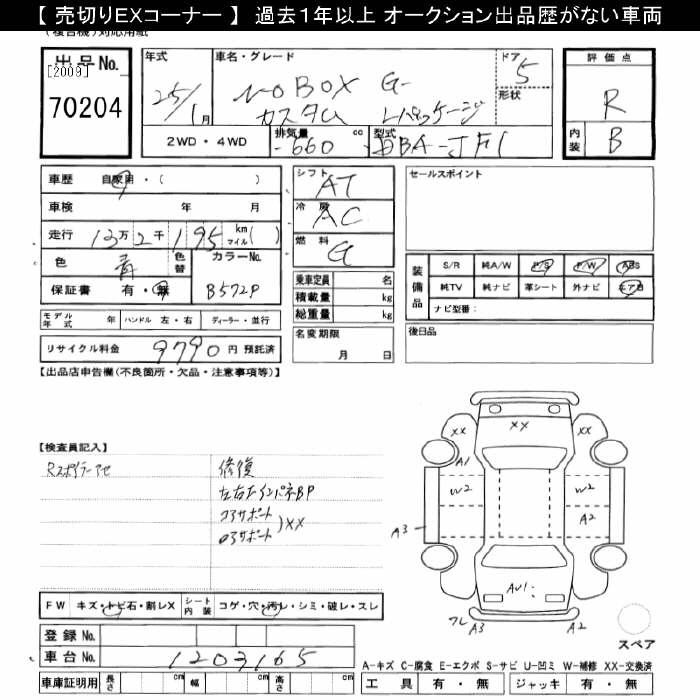 【 売切りEXコーナー 】 過去1年以上 オークション出品歴がない車両
(複合機)対応用紙
出品No.
[2009]
70204
年式
25/1月
車名・グレード
N BOX G
カスタム Lパッケージ
ドア
5
形状
評価点
R
内装
B
2WD・4WD
排気量
660
cc
型式
DBA-JF1
車歴 自家用・( )
車検 年 月
走行 13万2千195 km マイル( )
色 青 色替
カラーNo.
B572P
保証書 有・無
シフト AT
冷房 AC
燃料 G
乗車定員 名
積載量 kg
総重量 kg
名変期限
月 日
セールスポイント
装備品
S/R 純A/W P/S P/W ABS
純TV 純ナビ 革シート 外ナビ エアB
ナビ型番:
後日品
モデル年式 年 ハンドル 左・右 ディーラー・並行
リサイクル料金 9790円 預託済
【出品店申告欄(不良箇所・欠品・注意事項等)】
【検査員記入】
Rスポイラーアセ
修復
左右FインパネBP
コアサポート
ロアサポート
)XX
XX
XX
XX
A1
W2
W2
A3
A2
AU1
A3
A2
スペア
FW キズ・トビ石・割レX
シート内装 コゲ・穴・汚レ・シミ・破レ・スレ
登録No.
車台No. 1203165
車庫証明用 長さ cm 幅 cm 高さ cm
A-キズ C-腐食 E-エクボ S-サビ U-凹ミ W-補修 XX-交換済
工具 有・無 ジャッキ 有・無